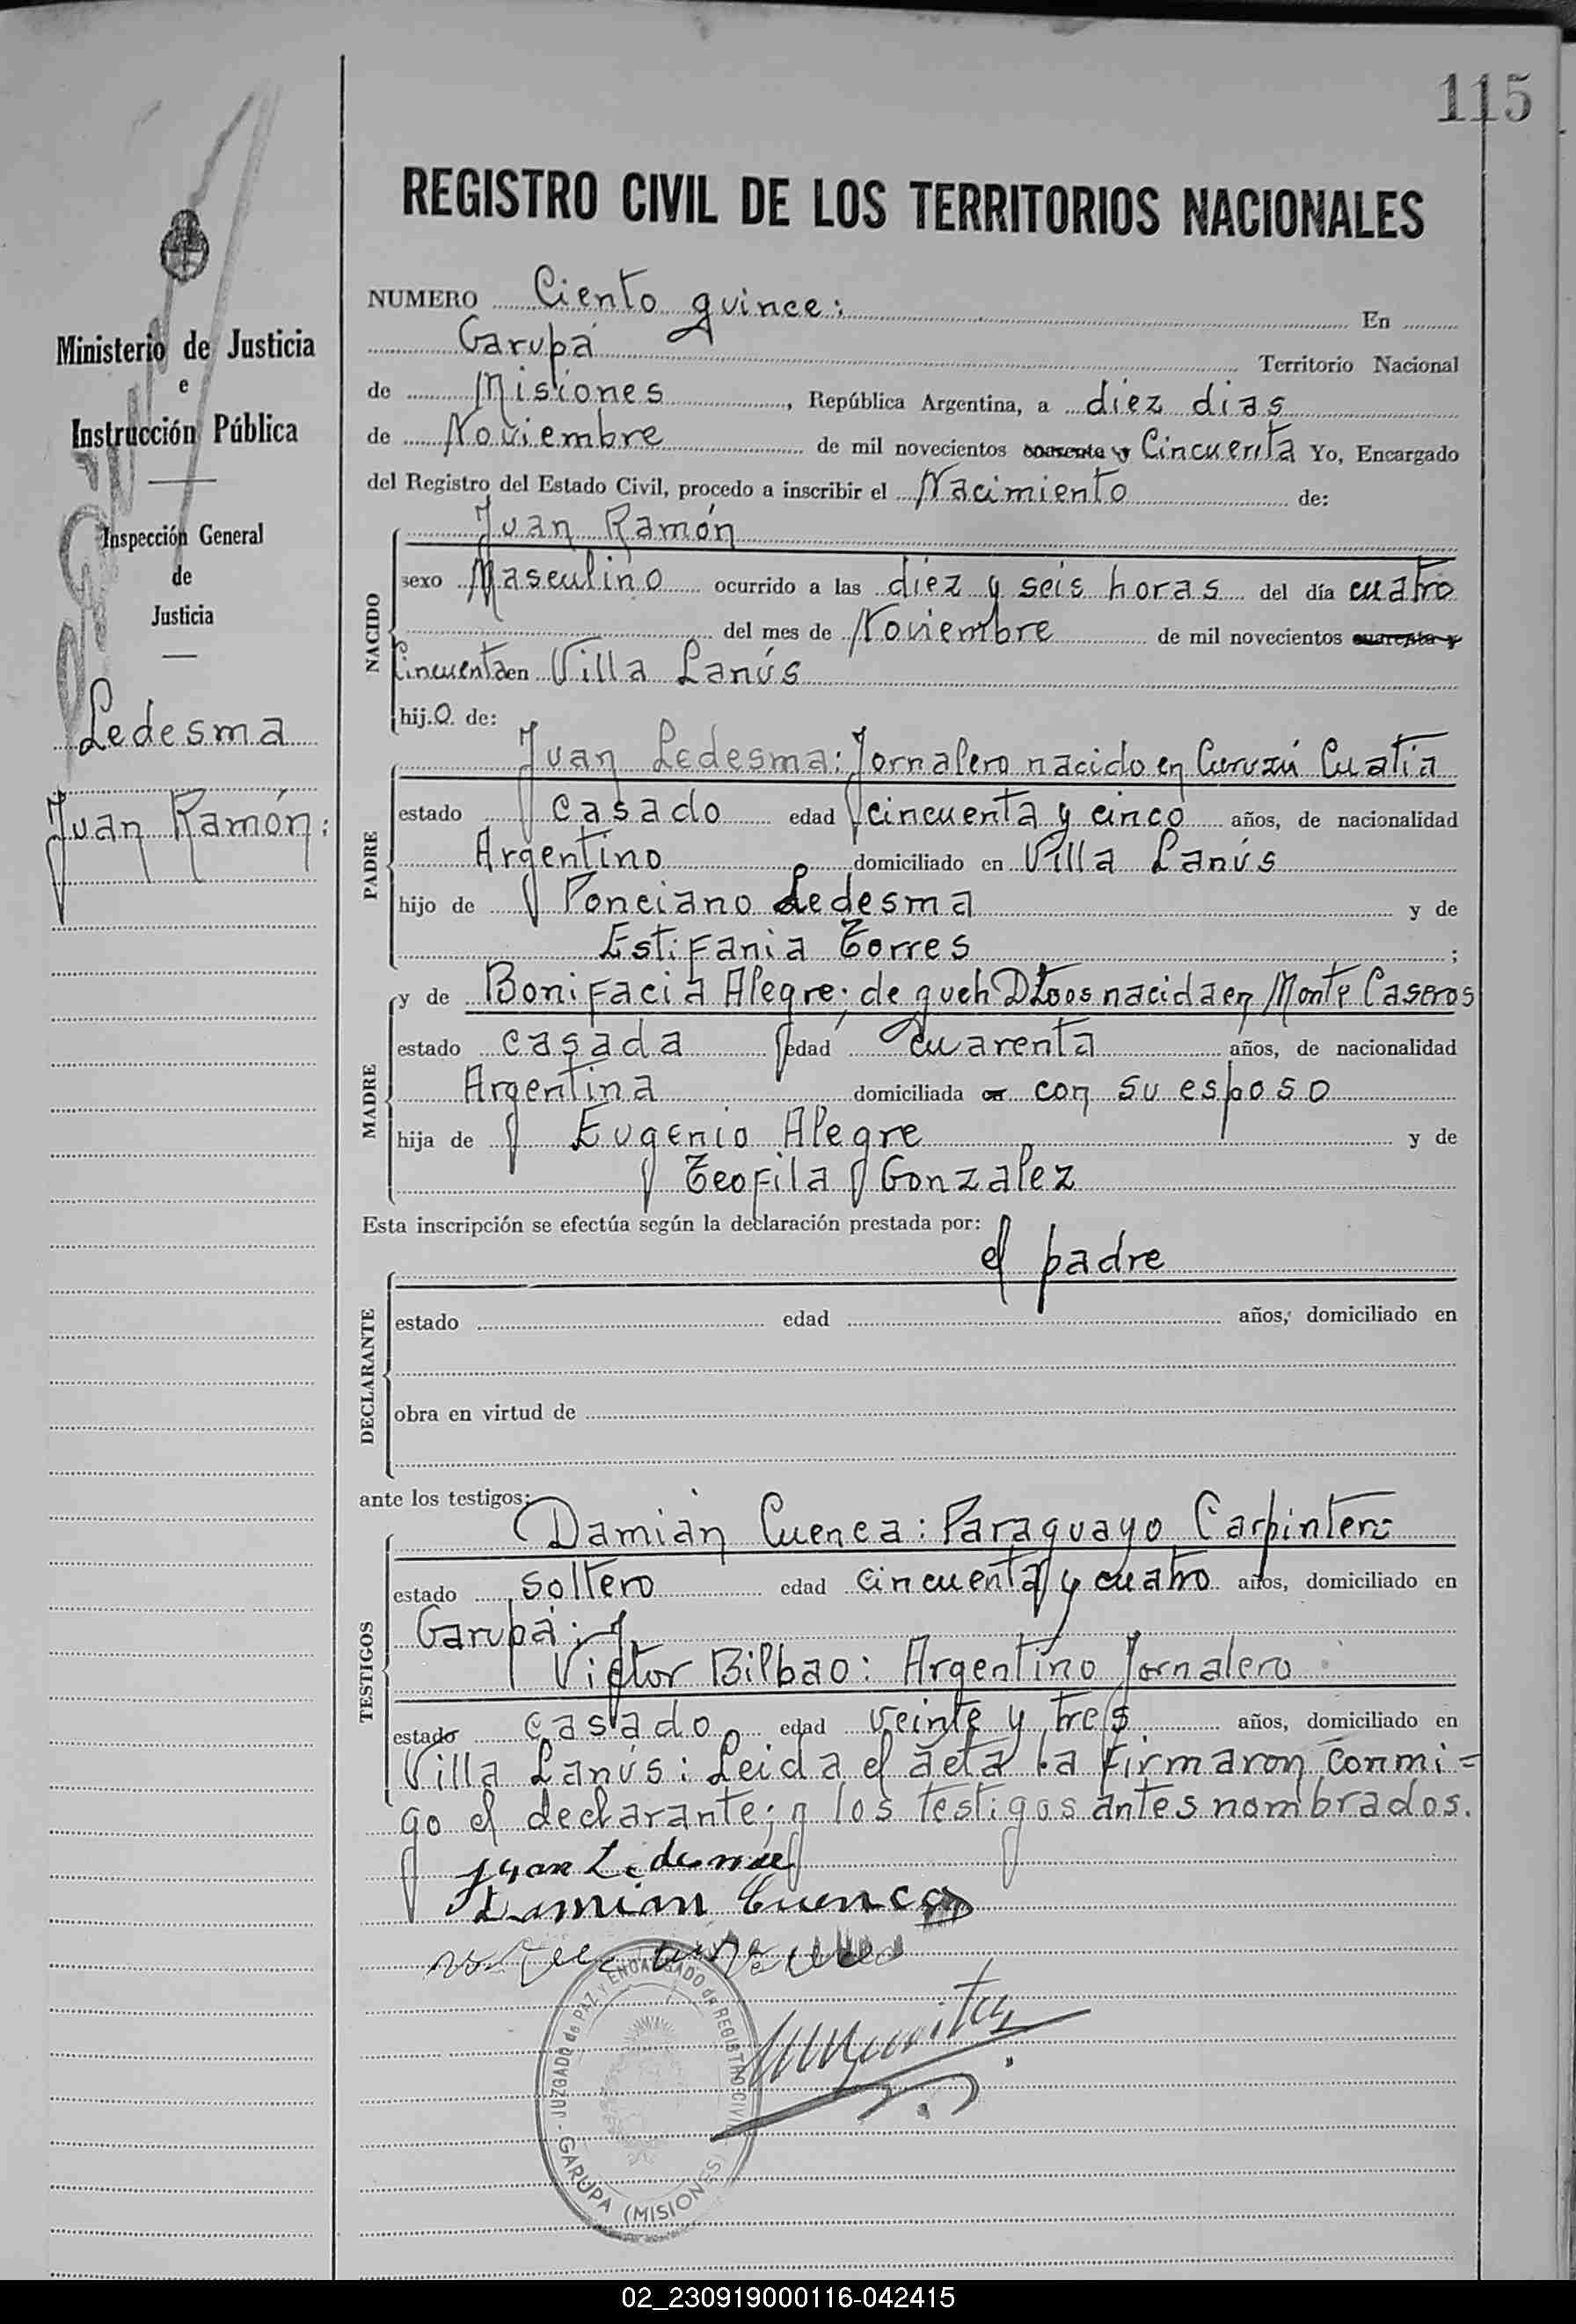 115
REGISTRO CIVIL DE LOS TERRITORIOS NACIONALES
Ministerio de Justicia
e
Instrucción Pública
Inspección General
de
Justicia
Ledesma
Juan Ramón:
NUMERO Ciento quince: En
Garupá Territorio Nacional
de Misiones, República Argentina, a diez dias
de Noviembre de mil novecientos cuarenta y Cincuenta Yo, Encargado
del Registro del Estado Civil, procedo a inscribir el Nacimiento de:
NACIDO
Juan Ramón
sexo Masculino ocurrido a las diez y seis horas del día cuatro
del mes de Noviembre de mil novecientos cuarenta y
Cincuenta en Villa Lanús
hijo de:
PADRE
Juan Ledesma: Jornalero nacido en Curuzú Cuatia
estado casado edad cincuenta y cinco años, de nacionalidad
Argentino domiciliado en Villa Lanús
hijo de Ponciano Ledesma y de
Estifania Torres ;
MADRE
y de Bonifacia Alegre; de nacida en Monte Caseros
estado casada edad cuarenta años, de nacionalidad
Argentina domiciliada en con su esposo
hija de Eugenio Alegre y de
Teofila Gonzalez
Esta inscripción se efectúa según la declaración prestada por:
el padre
DECLARANTE
estado edad años, domiciliado en
obra en virtud de
ante los testigos:
TESTIGOS
Damián Cuenca: Paraguayo Carpintero
estado soltero edad cincuenta y cuatro años, domiciliado en
Garupá:
Victor Bilbao: Argentino Jornalero
estado casado edad veinte y tres años, domiciliado en
Villa Lanús: Leida el acta la firmaron conmi=
go el declarante; y los testigos antes nombrados.
Juan Ledesma
Damian Cuenca
JUZGADO de PAZ y ENCARGADO de REGISTRO CIVIL
GARUPA (MISIONES)
02_230919000116-042415